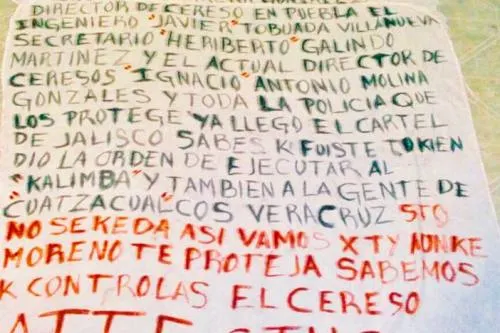 DIRECTOR DE CERESO EN PUEBLA EL
INGENIERO "JAVIER" TOBUADA VILLANUEVA
SECRETARIO "HERIBERTO" GALINDO
MARTINEZ" Y EL ACTUAL DIRECTOR DE
CERESOS "IGNACIO" ANTONIO MOLINA
GONZALES Y TODA LA POLICIA QUE
LOS PROTEGE YA LLEGO EL CARTEL
DE JALISCO SABES K FUISTE TO KIEN
DIO LA ORDEN DE EJECUTAR AL
"KALIMBA" Y TAMBIEN A LA GENTE DE
"CUATZACUAL"COS VERACRUZ STO
NO SE KEDA ASI VAMOS X TY AUNKE
MORENO TE PROTEJA SABEMOS
K CONTROLAS EL CERESO